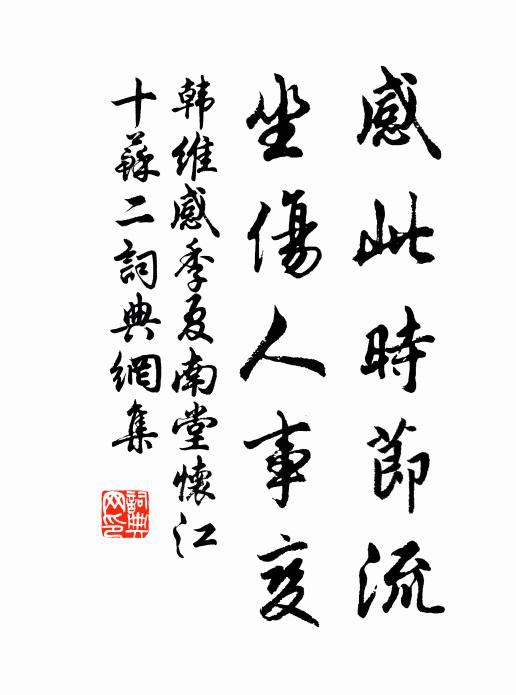 感此時節流
坐傷人事变
韩維感季夏南堂懷江
十蘇二詞典網集
詞典
网印